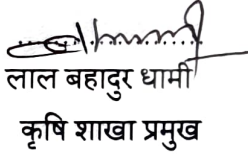 लाल बहादुर धामी
कृषि शाखा प्रमुख